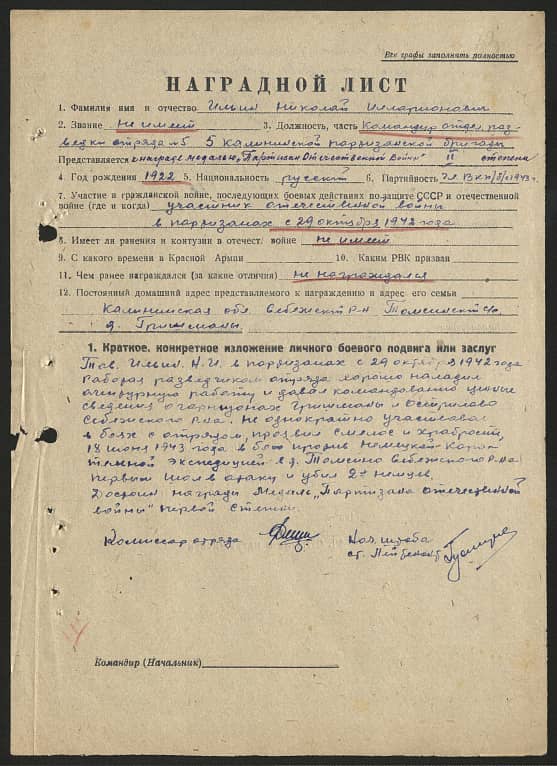 Все графы заполнять полностью
НАГРАДНОЙ ЛИСТ
1. Фамилия имя и отчество Ильин Николай Илларионович
2. Звание не имеет 3. Должность, часть Командир отдел. раз-
ведки отряда №5 5 Калининской партизанской бригады
Представляется к награде медалью „Партизан Отечественной Войны" II степени
4. Год рождения 1922 5. Национальность русский 6. Партийность чл. ВКП/б/ с 1943 г.
7. Участие в гражданской войне, последующих боевых действиях по защите СССР и отечественной
войне (где и когда) участник отечественной войны
в партизанах с 29 октября 1942 года
8. Имеет ли ранения и контузии в отечест. войне не имеет
9. С какого времени в Красной Армии 10. Каким РВК призван
11. Чем ранее награждался (за какие отличия) не награждался
12. Постоянный домашний адрес представляемого к награждению и адрес его семьи
Калининская обл. Себежский р-н Томсинский с/с
д. Гришманы
1. Краткое, конкретное изложение личного боевого подвига или заслуг
Тов. Ильин Н.И. в партизанах с 29 октября 1942 года
Работая разведчиком отряда хорошо наладил
агентурную работу и давал командованию ценные
сведения о гарнизонах Гришманы и
Себежского р-на. Не однократно участвовал
в боях с отрядом, проявил смелость и храбрость,
18 июня 1943 года в бою против немецкой кара-
тельной экспедицией в д. Томсино Себежского р-на
первым шел в атаку и убил 2х немцев.
Достоин награды Медаль „Партизана отечественной
войны" первой степени.
Комиссар отряда Нач. штаба
ст. Лейтенант
Командир (Начальник)